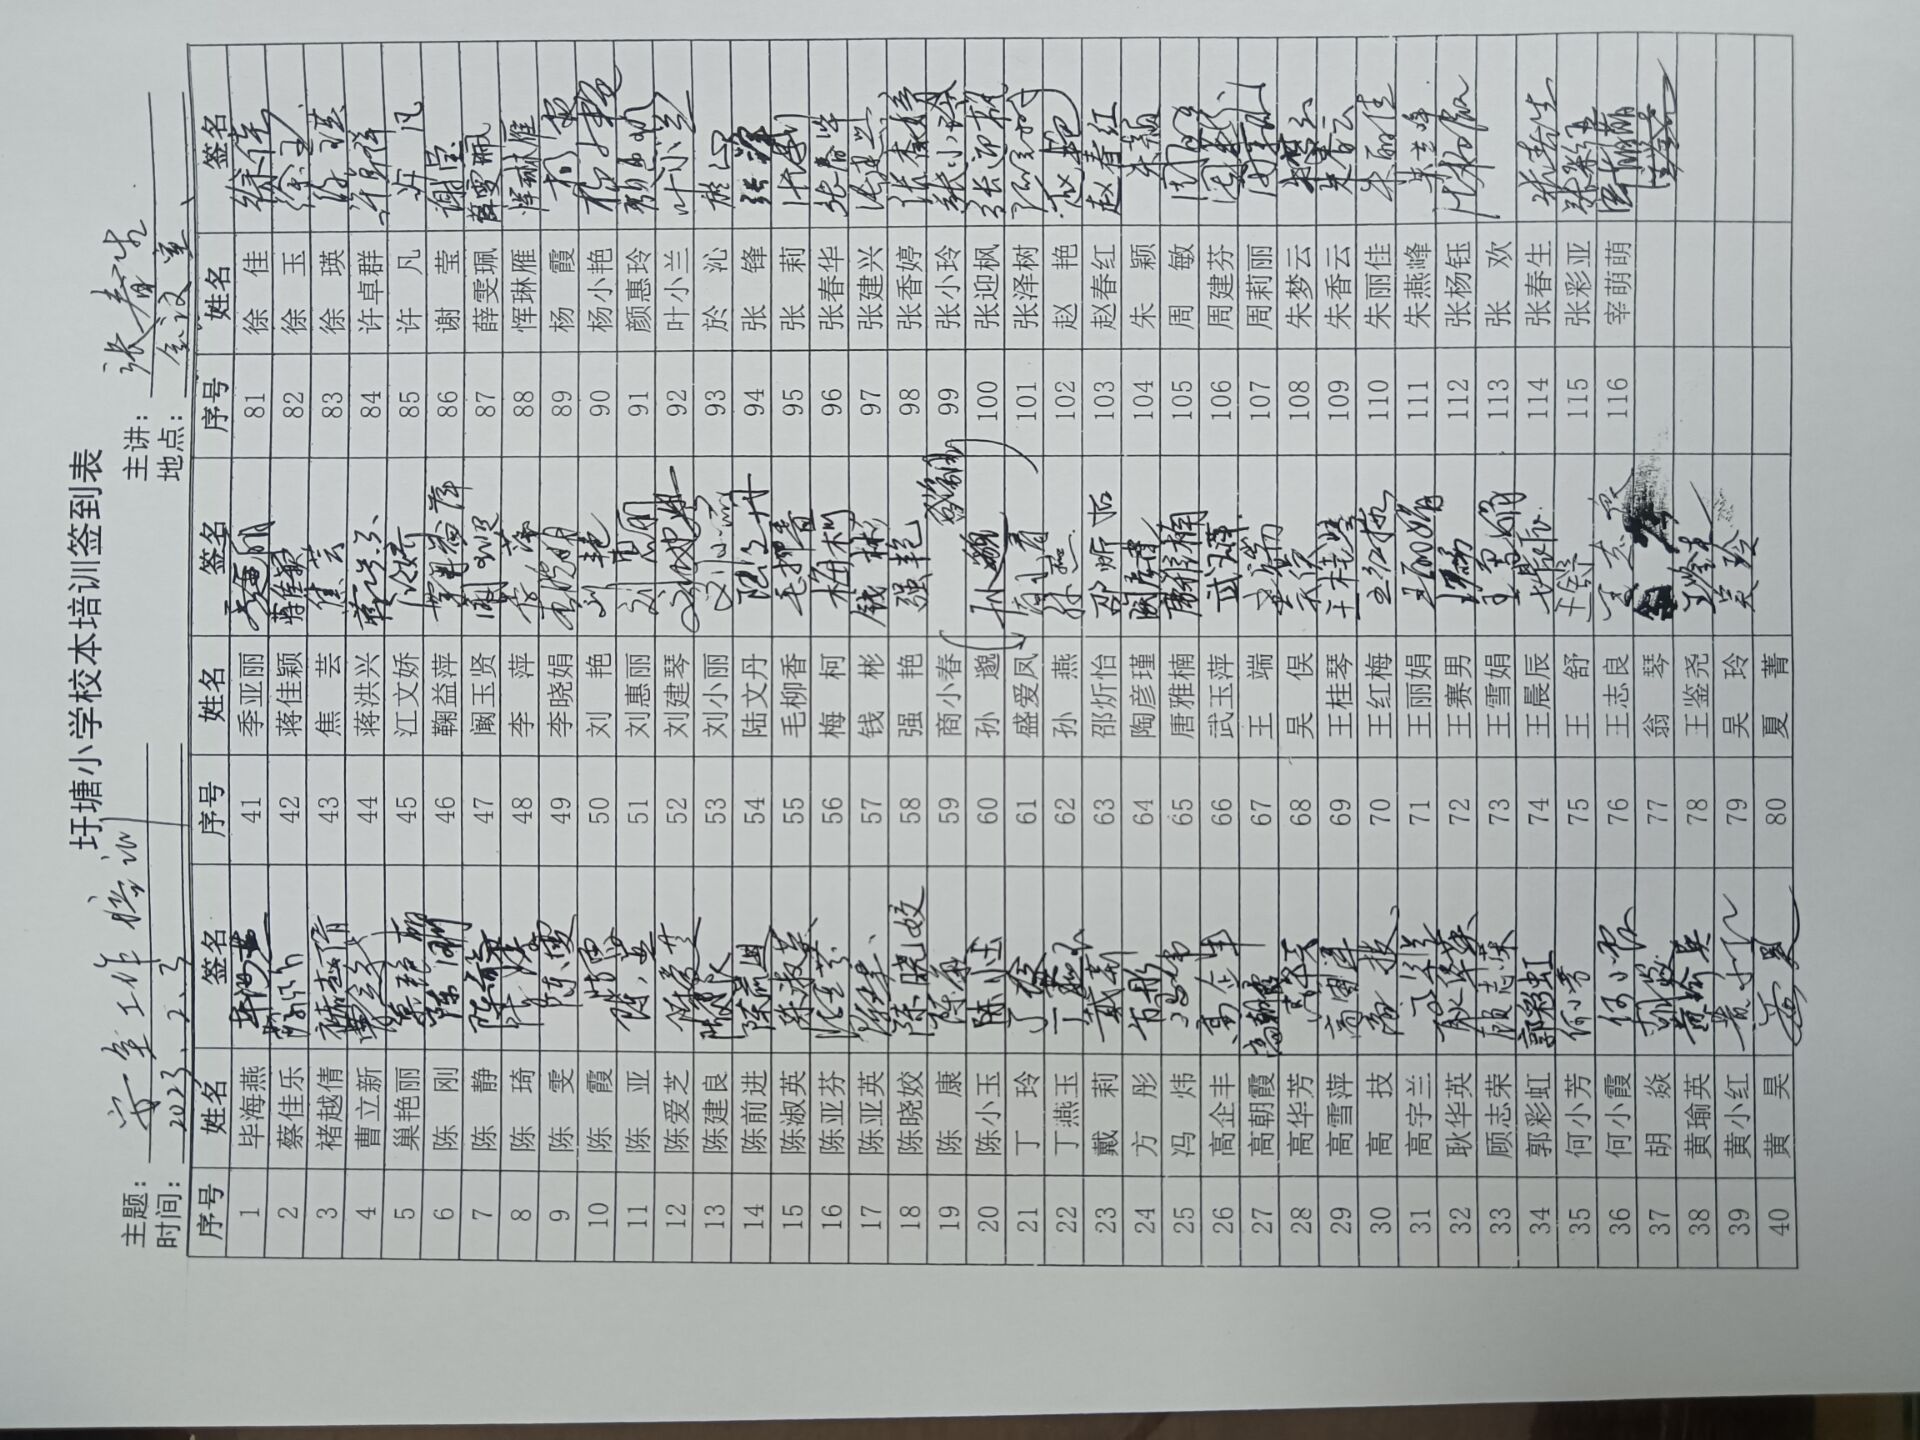 圩塘小学校本培训签到表
主题： 安全工作培训 主讲： 张春生
时间： 2023.2.3 地点： 会议室
序号 姓名 签名 序号 姓名 签名 序号 姓名 签名
1 毕海燕 41 季亚丽 81 徐佳 徐佳
2 蔡佳乐 42 蒋佳颖 蒋佳颖 82 徐玉 徐玉
3 褚越倩 43 焦芸 焦芸 83 徐瑛 徐瑛
4 曹立新 44 蒋洪兴 84 许卓群
5 巢艳丽 45 江文娇 85 许凡 许凡
6 陈刚 陈刚 46 鞠益萍 鞠益萍 86 谢莹 谢莹
7 陈静 陈静 47 阚玉贤 87 薛雯珮 薛雯珮
8 陈琦 陈琦 48 李萍 李萍 88 恽琳雁 恽琳雁
9 陈雯 陈雯 49 李晓娟 李晓娟 89 杨霞 杨霞
10 陈霞 陈霞 50 刘艳 刘艳 90 杨小艳 杨小艳
11 陈亚 陈亚 51 刘惠丽 91 颜惠玲
12 陈爱芝 52 刘建琴 92 叶小兰 叶小兰
13 陈建良 53 刘小丽 刘小丽 93 於沁 於沁
14 陈前进 54 陆文丹 陆文丹 94 张锋 张锋
15 陈淑英 陈淑英 55 毛柳香 95 张莉 张莉
16 陈亚芬 56 梅柯 梅柯 96 张春华 张春华
17 陈亚英 57 钱彬 钱彬 97 张建兴
18 陈晓姣 陈晓姣 58 强艳 强艳 98 张香婷 张香婷
19 陈康 陈康 59 商小春 99 张小玲 张小玲
20 陈小玉 陈小玉 60 孙邈 孙邈 100 张迎枫 张迎枫
21 丁玲 丁玲 61 盛爱凤 101 张泽树
22 丁燕玉 62 孙燕 孙燕 102 赵艳 赵艳
23 戴莉 戴莉 63 邵炘怡 邵炘怡 103 赵春红 赵春红
24 方彤 方彤 64 陶彦瑾 104 朱颖 朱颖
25 冯炜 冯炜 65 唐雅楠 唐雅楠 105 周敏
26 高企丰 高企丰 66 武玉萍 武玉萍 106 周建芬
27 高朝霞 高朝霞 67 王端 107 周莉丽
28 高华芳 68 吴俣 吴俣 108 朱梦云
29 高雪萍 69 王桂琴 王桂琴 109 朱香云 朱香云
30 高技 高技 70 王红梅 王红梅 110 朱丽佳 朱丽佳
31 高宇兰 71 王丽娟 王丽娟 111 朱燕峰
32 耿华英 72 王赛男 112 张杨钰
33 顾志荣 顾志荣 73 王雪娟 王雪娟 113 张欢
34 郭彩虹 郭彩虹 74 王晨辰 114 张春生 张春生
35 何小芳 何小芳 75 王舒 王舒 115 张彩亚 张彩亚
36 何小霞 何小霞 76 王志良 116 宰萌萌
37 胡焱 胡焱 77 翁琴
38 黄瑜英 78 王鉴尧
39 黄小红 79 吴玲 吴玲
40 黄昊 80 夏菁